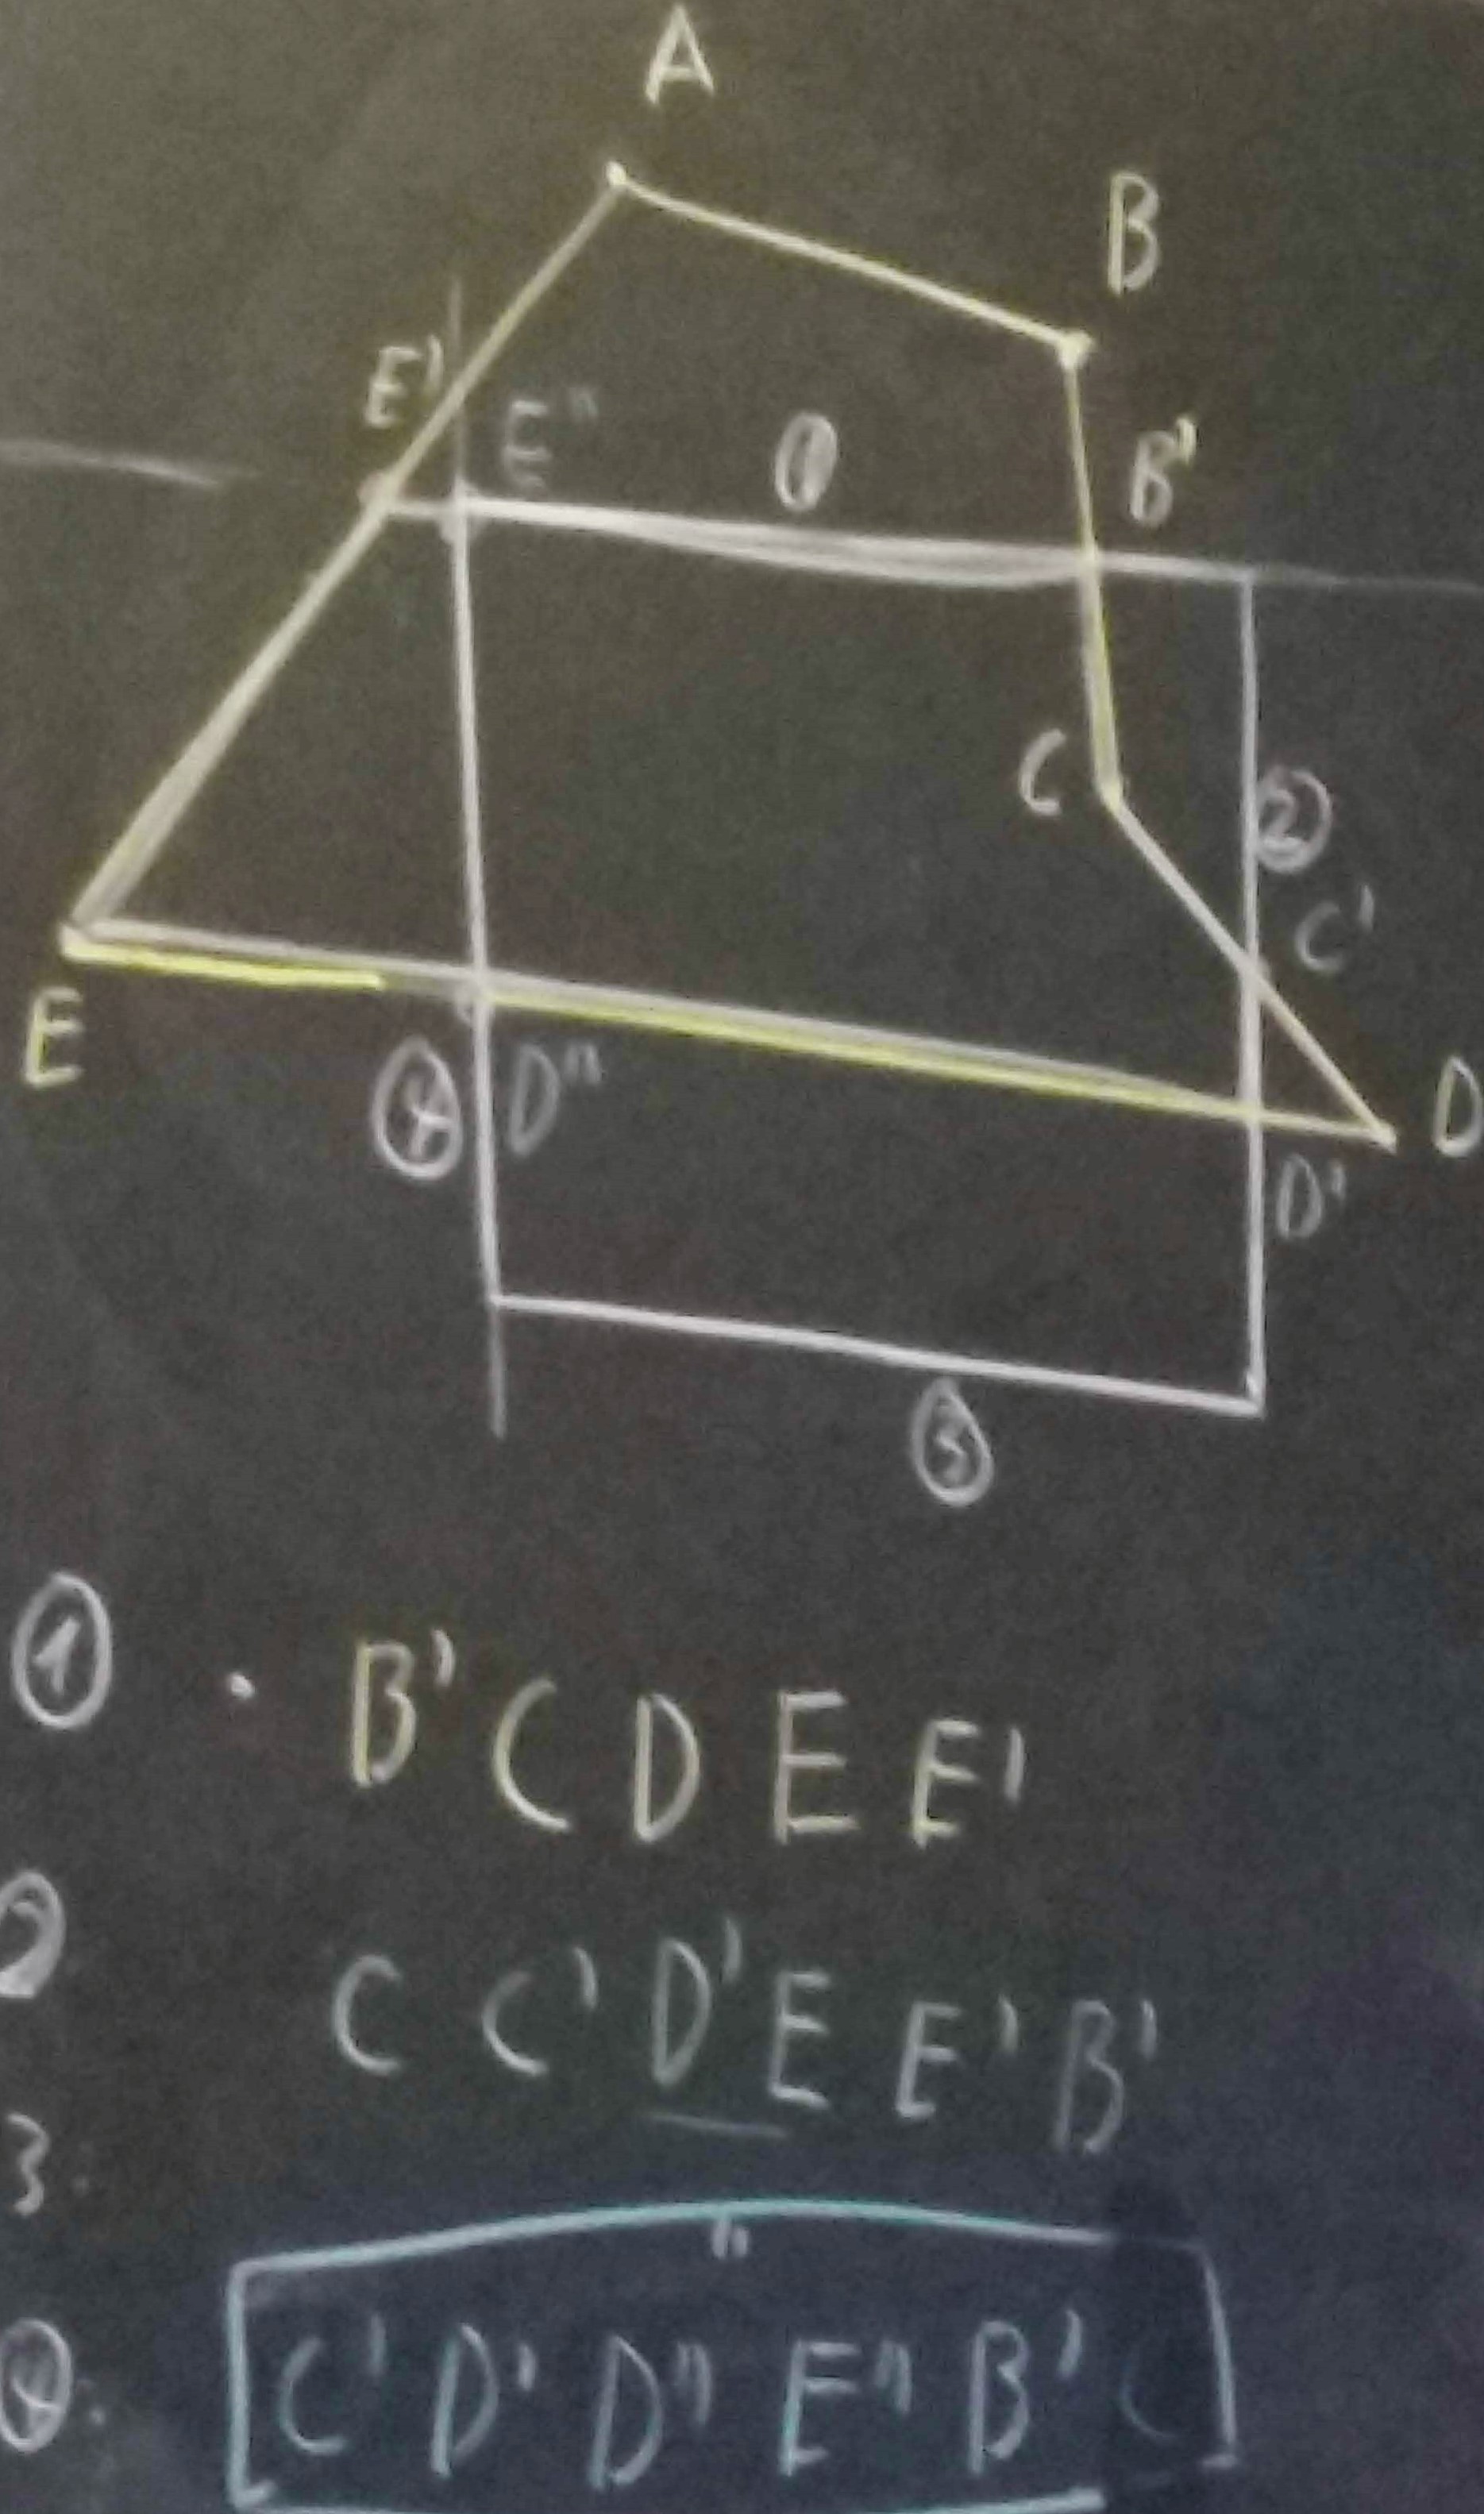 A
B
E' E" ① B'
C ②
C'
E ④ D" D
D'
③
① · B' C D E E'
2 C C' D' E E' B'
3. "
④. C' D' D" E" B' C